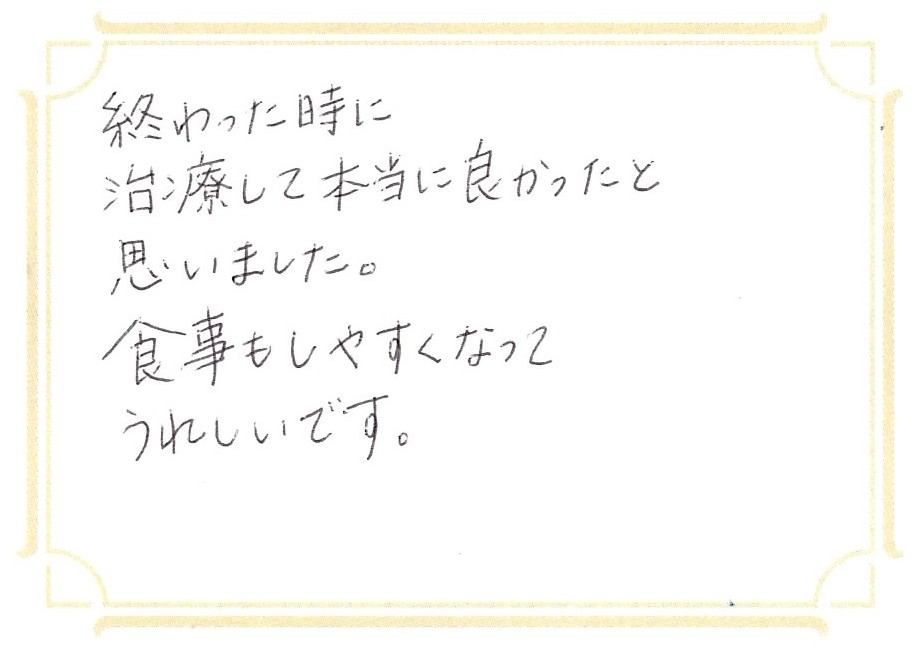 終わった時に
治療して本当に良かったと
思いました。
食事もしやすくなって
うれしいです。